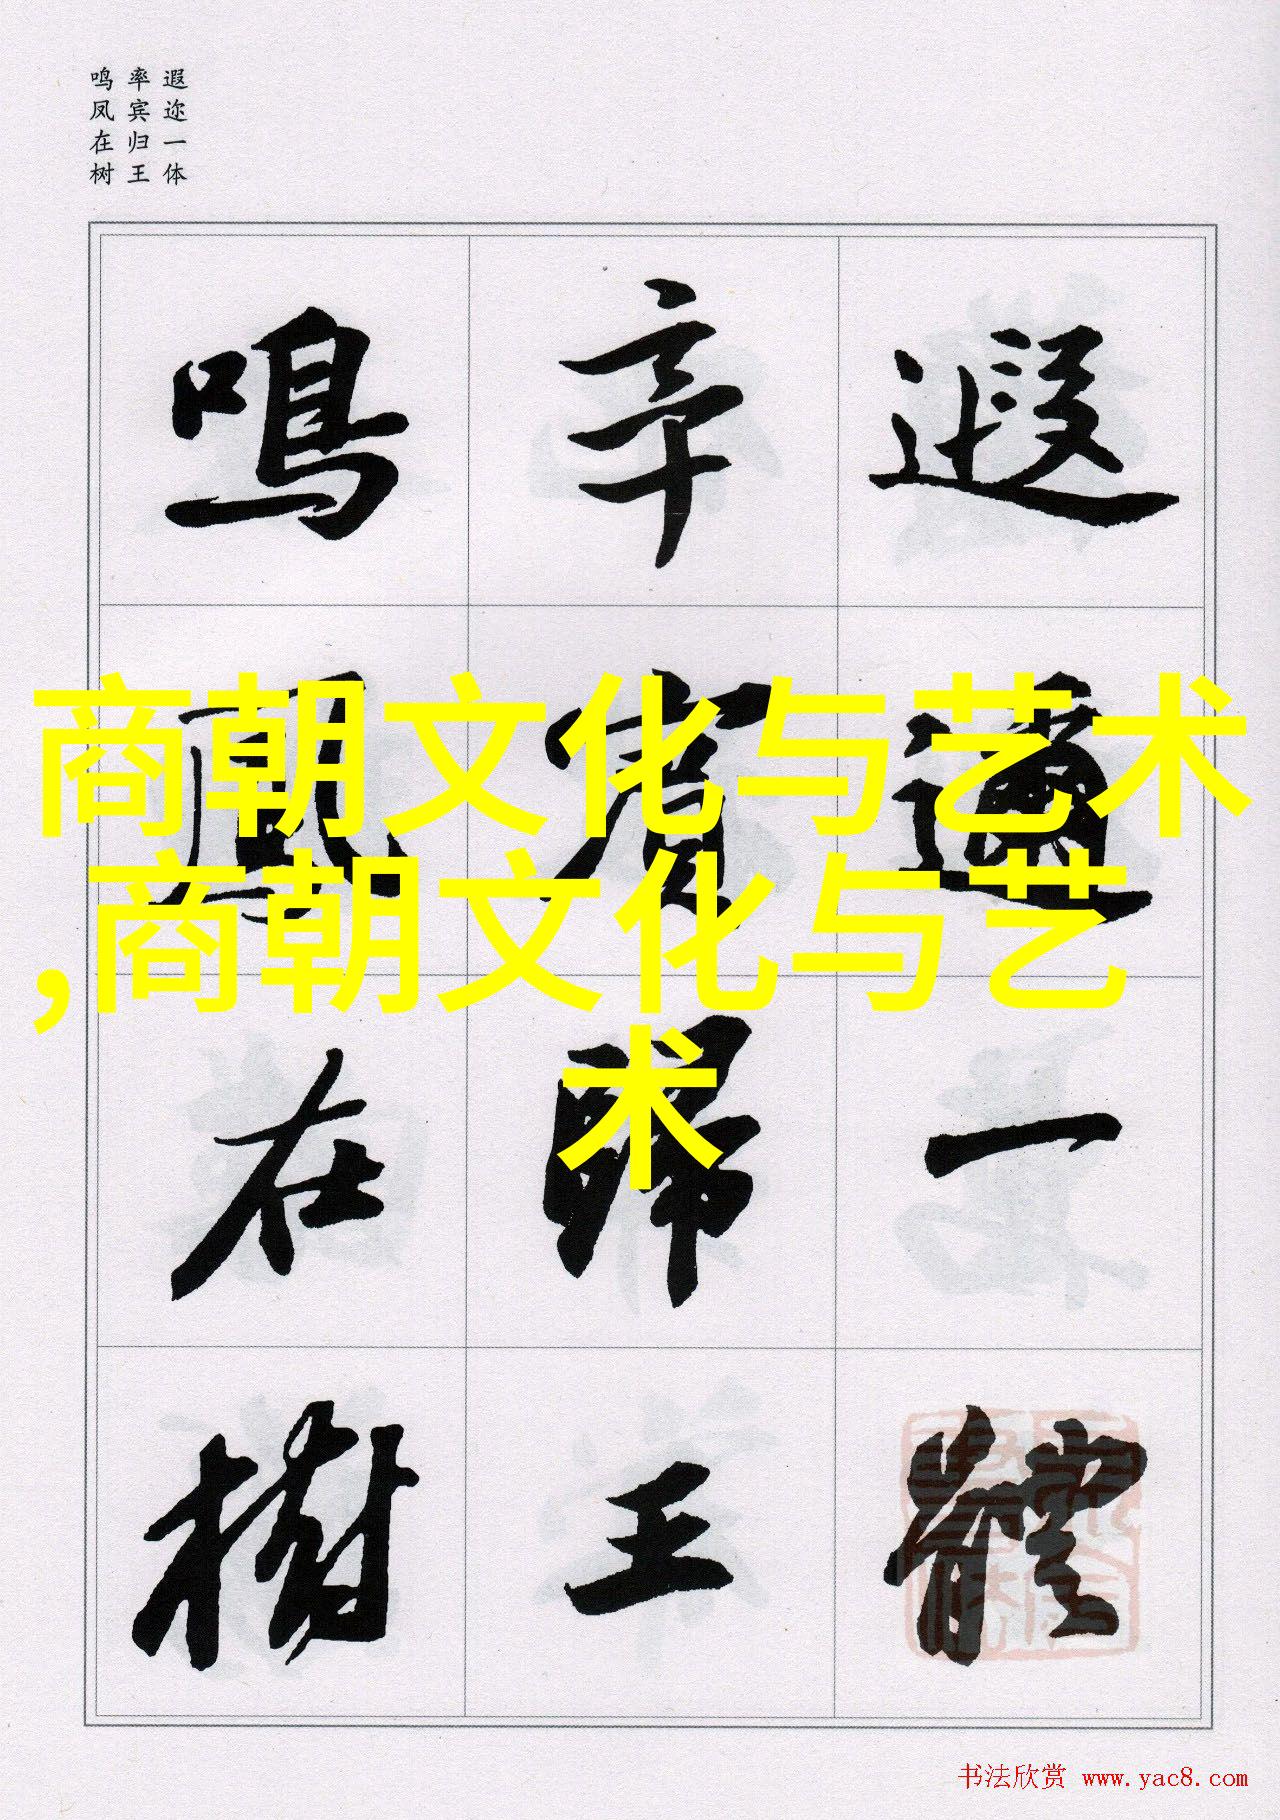 遐迩一体
率宾归王
鸣凤在树
遐邇一體
率賓歸王
鳴鳳在樹
商朝文化与艺术
,商朝文化与艺
术
书法欣赏 www.yac8.com